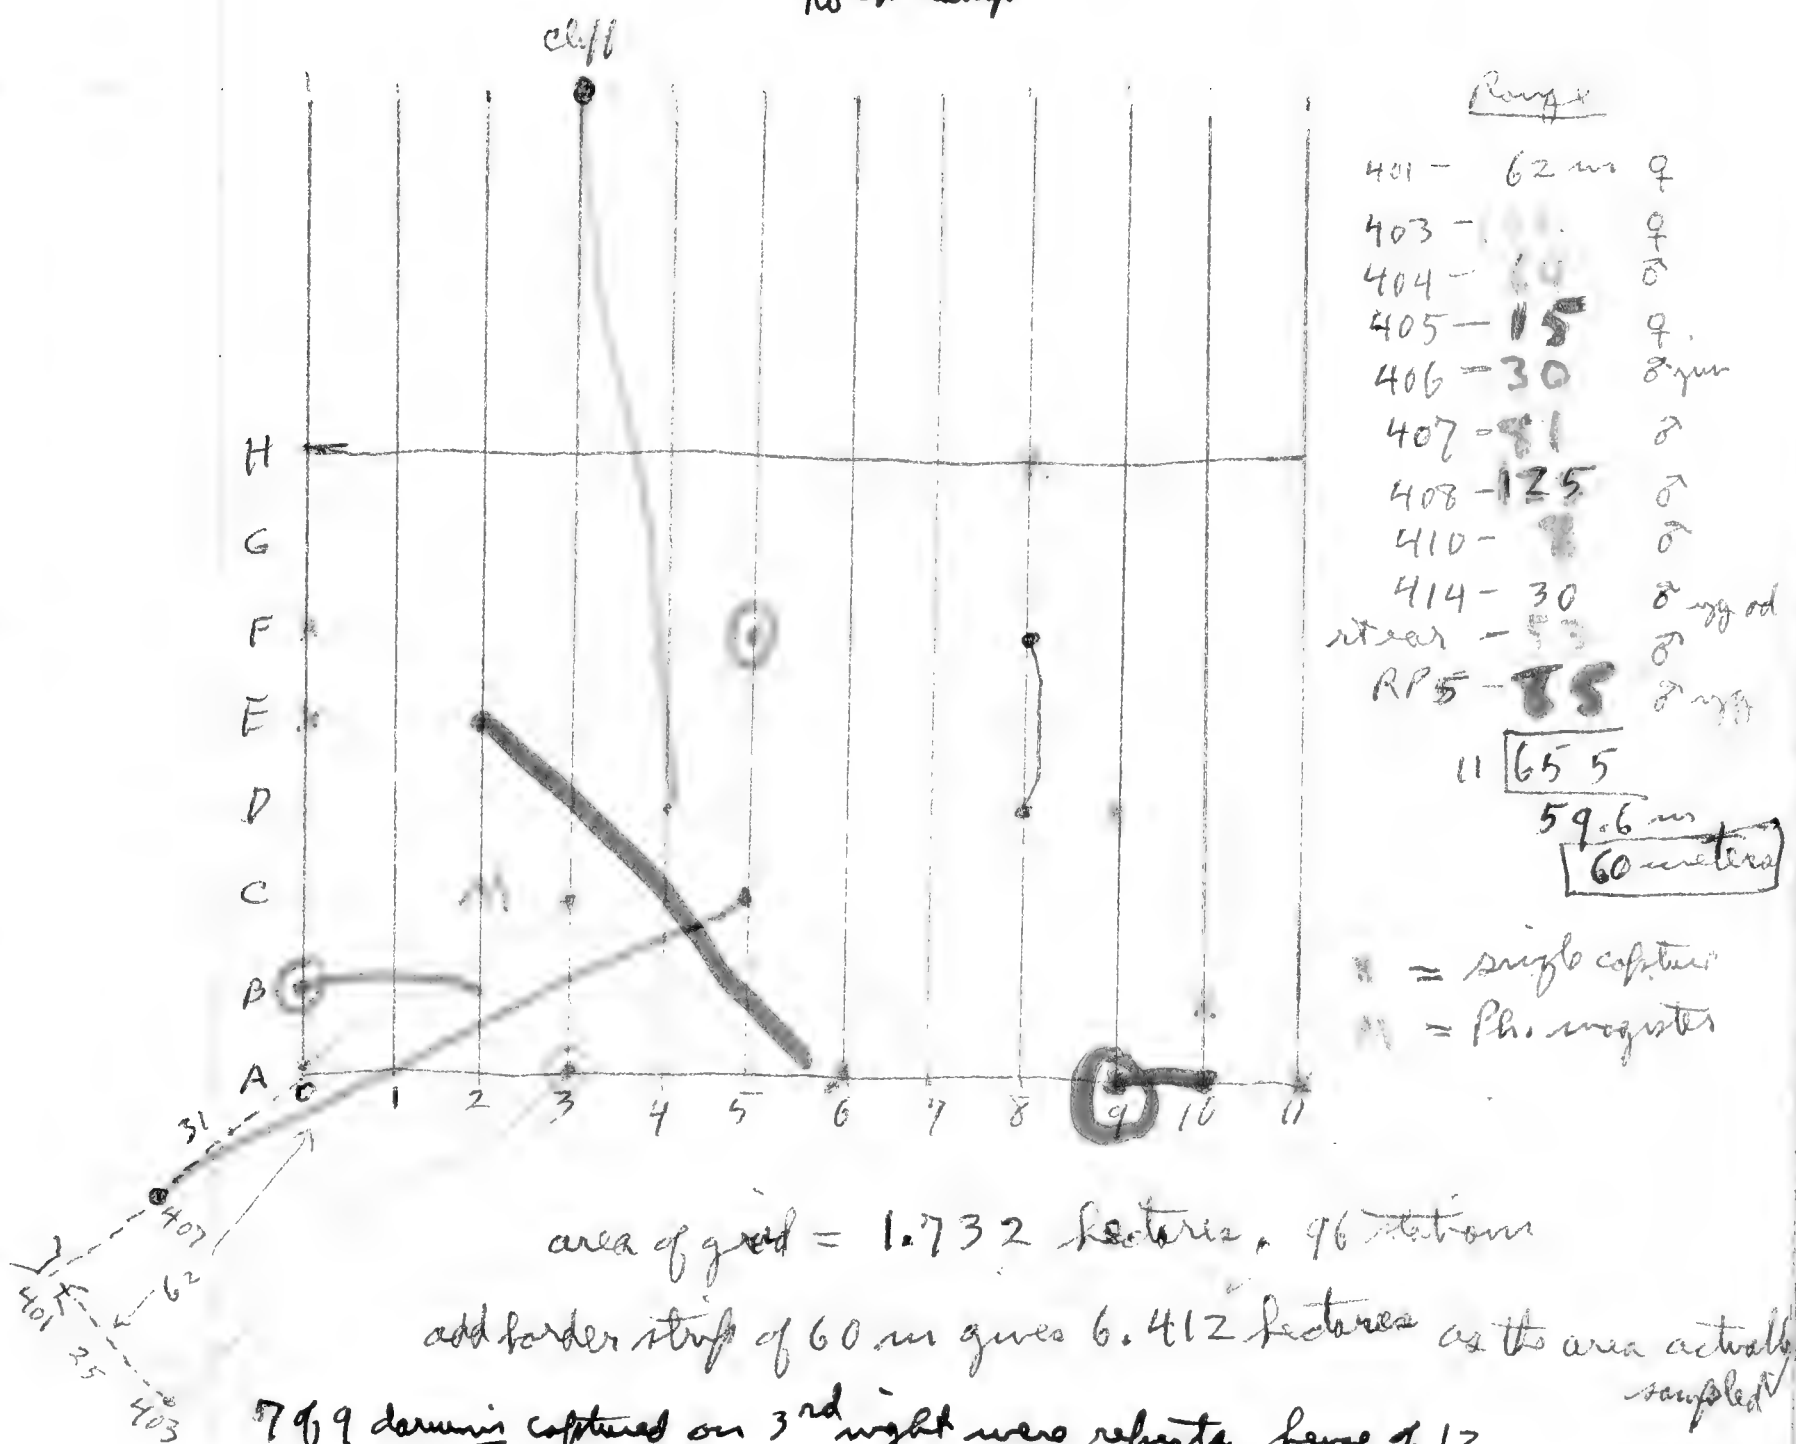 cliff
Range
401 - 62 m ♀
403 - ♀
404 - 64 ♂
405 - 15 ♀.
406 - 30 ♂ juv
407 - 81 ♂
408 - 125 ♂
410 - ♂
414 - 30 ♂ yg ad
rt ear - 53 ♂
RP5 - 85 ♂ yg
11 655
59.6 m
60 meters
H
G
F
E
D
C M
B
A
0 1 2 3 4 5 6 7 8 9 10 11
= single capture
M = Ph. magister
31
407
62
401
25
403
area of grid = 1.732 hectares. 96 stations
add border strip of 60 m gives 6.412 hectares as the area actually
sampled
7 of 9 darwini captured on 3rd night were repeats, hence of 12